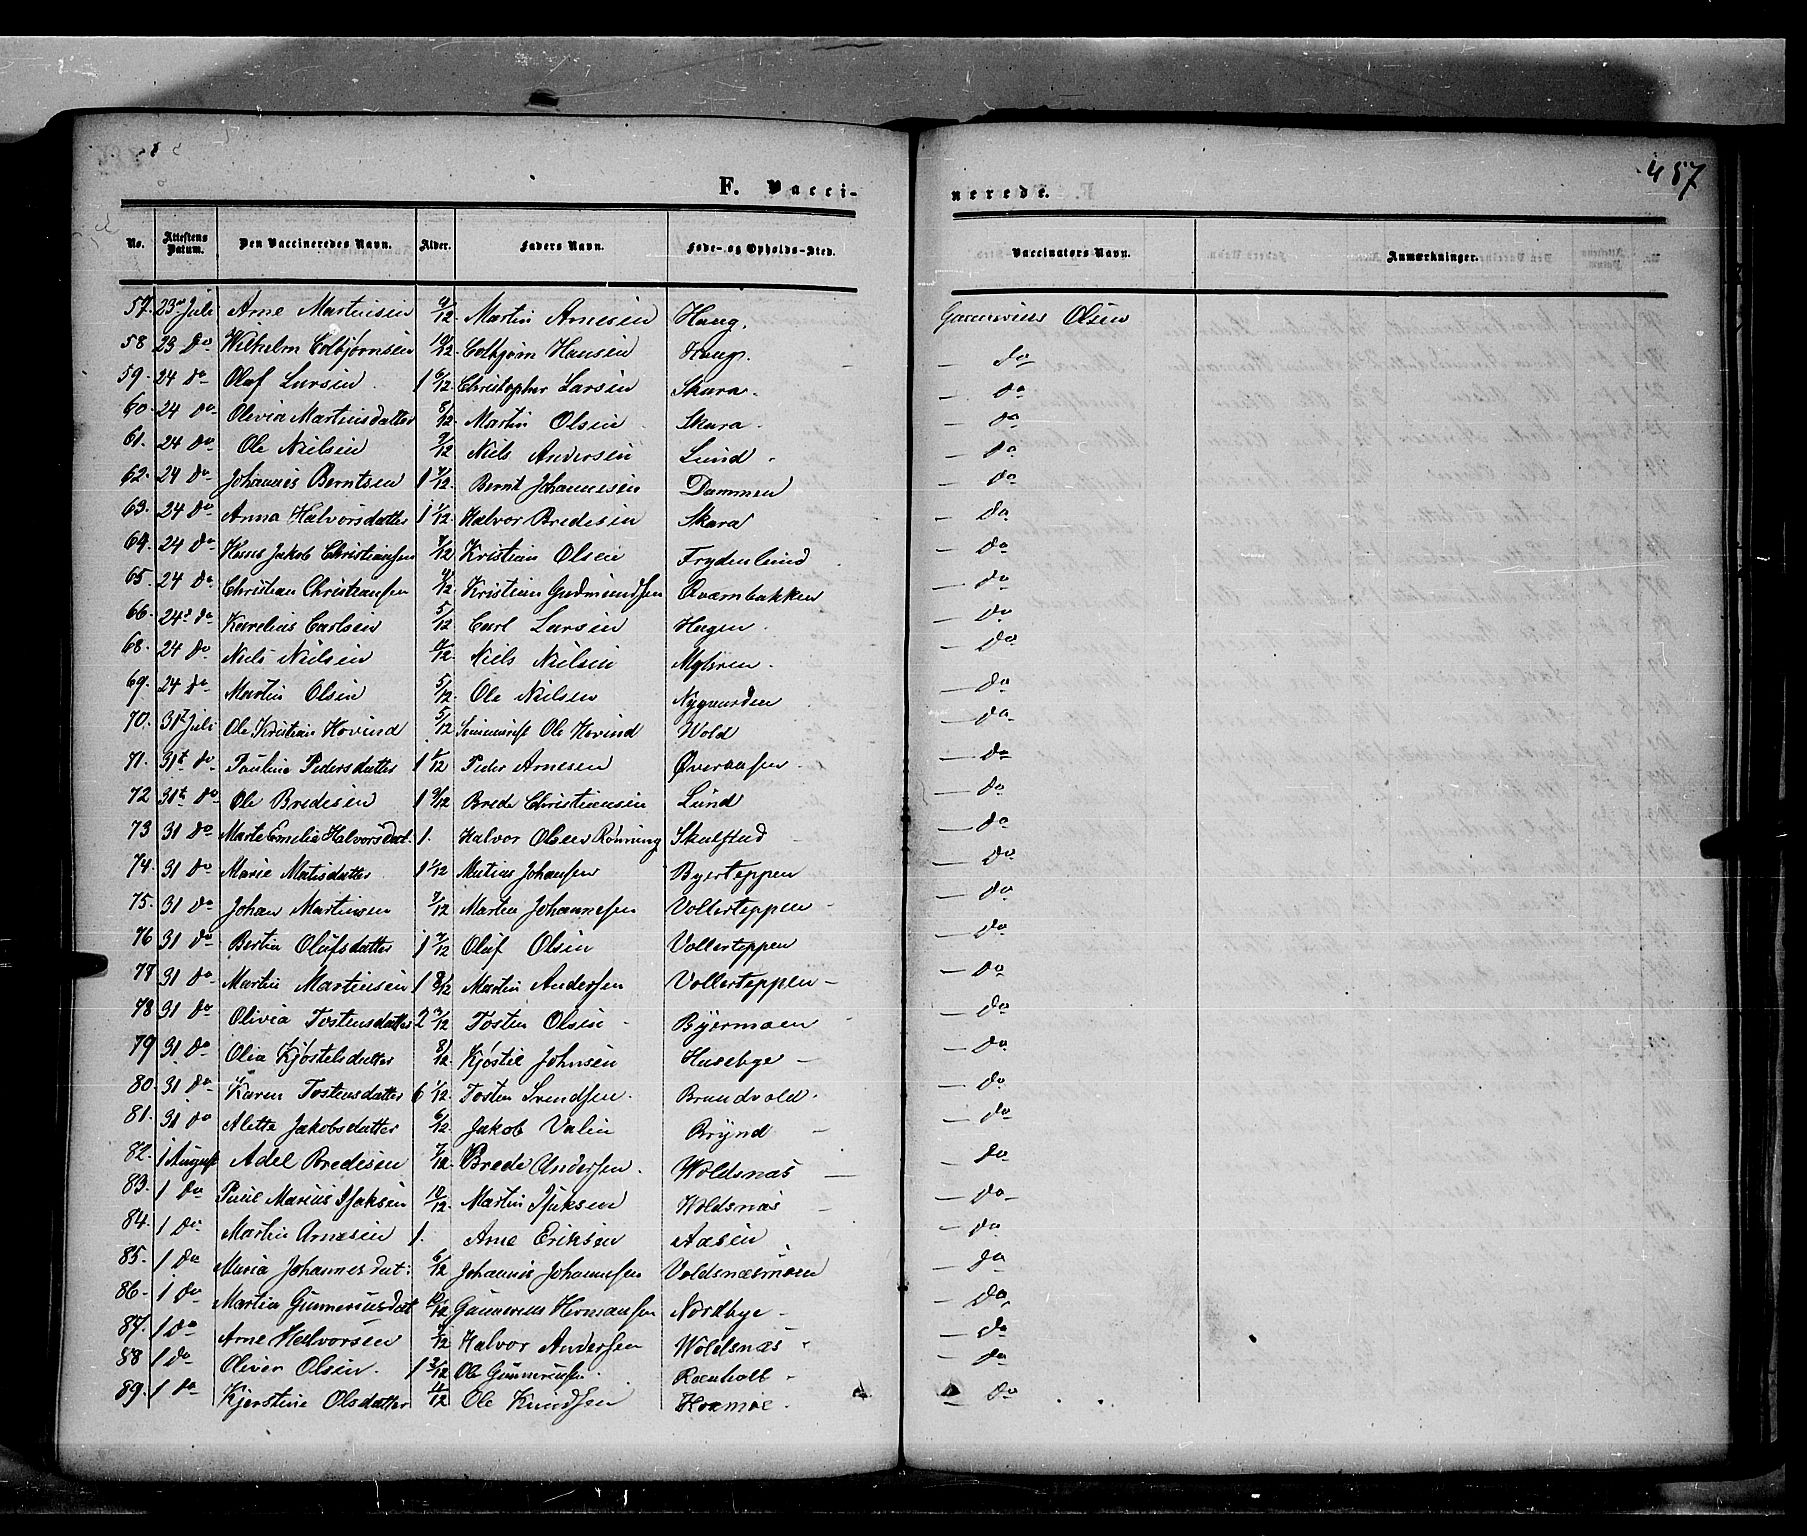 487
F. Vacci-
nerede.
No. Attestens Datum. Den Vaccineredes Navn. Alder. Faders Navn. Føde- og Opholds-Sted. Vaccinators Navn. Anmærkninger.
57. 23 Juli Arne Martinsen 9/12 Martin Arnesen Haug. Olsen
58 23 do Wilhelm Colbjørnsen 10/12 Colbjørn Hansen do
59. 24 do Olaf Larsen 1 6/12 Christopher Larsen Skara. do
60. 24 do Olivia Martinsdatter 8/12 Martin Olsen Skara. do
61. 24 do Ole Nielsen 9/12 Niels Andersen Lund. do
62. 24 do Johannes Berntsen 1 Bernt Johannesen Dammen do
63. 24 do Anna Halvorsdatter 1 Halvor Bredesen Skara do
64. 24 do Hans Jakob Christiansen 7/12 Kristian Olsen Frydenlund do
65. 24 do Christian Christiansen Kristian Gudmundsen Qværnbakken do
66. 24 do Karelius Carlsen 5/12 Carl Larsen Hagen. do
68. 24 do Niels Nielsen Niels Nielsen Myhren. do
69. 24 do Martin Olsen 5/12. Ole Nielsen Nygaarden do
70. 31 Juli Ole Kristian Hovind 5/12 Ole Hovind Wold do
71. 31t do Pauline Pedersdatter 1 Peder Arnesen Øveraasen. do
72 31t do Ole Bredesen 1 9/12 Brede Christiansen Lund do
73 31 do Marte Emelie Halvorsdat. 1. Halvor Olsen Rønning Skulstad do
74. 31 do Marie Matisdatter 1 1/12 Matias Johansen Byerteppen do
75. 31 do Johan Martinsen 7/12 Martin Johannesen Vollerteppen do
76 31 do Bertia Olafsdatter 1 7/12 Olaf Olsen Vollerteppen do
78 31 do Martin Martinsen 1 8/12 Martin Andersen Vollerteppen do
78 31 do Olivia Tostensdatter 2 Tosten Olsen Byermoen do
79 31 do Olia Kjøstelsdatter 8/12 Kjøstel Johnsen Husebye do
80. 31 do Karen Tostensdatter 6 1/12. Tosten Svendsen. Brandvold. do
81. 31 do Alette Jakobsdatter 6/12 Jakob Valin Brynd do
82. 1 August Adel Bredesen 7/12 Brede Andersen. Woldsnæs do
83. 1 do Paul Marius Isaksen 10/12. Martin Isaksen Woldsnæs do
84. 1 do Martin Arnesen 1. Arne Eriksen Aasen do
85. 1 do Maria Johannesdat: 6/12 Johannes Johannesen Voldsnæsmoen do
86. 1 do Martia Gunneriusdat 10/12 Gunnerius Hermansen Nordbye do
87. 1 do Arne Halvorsen Halvor Andersen Woldsnæs do
88 1 do Oliver Olsen. 1 3/12 Ole Gunneriusen. Rænholt do
89. 1 do Kjerstine Olsdatter Ole Knudsen Hoemoe. do